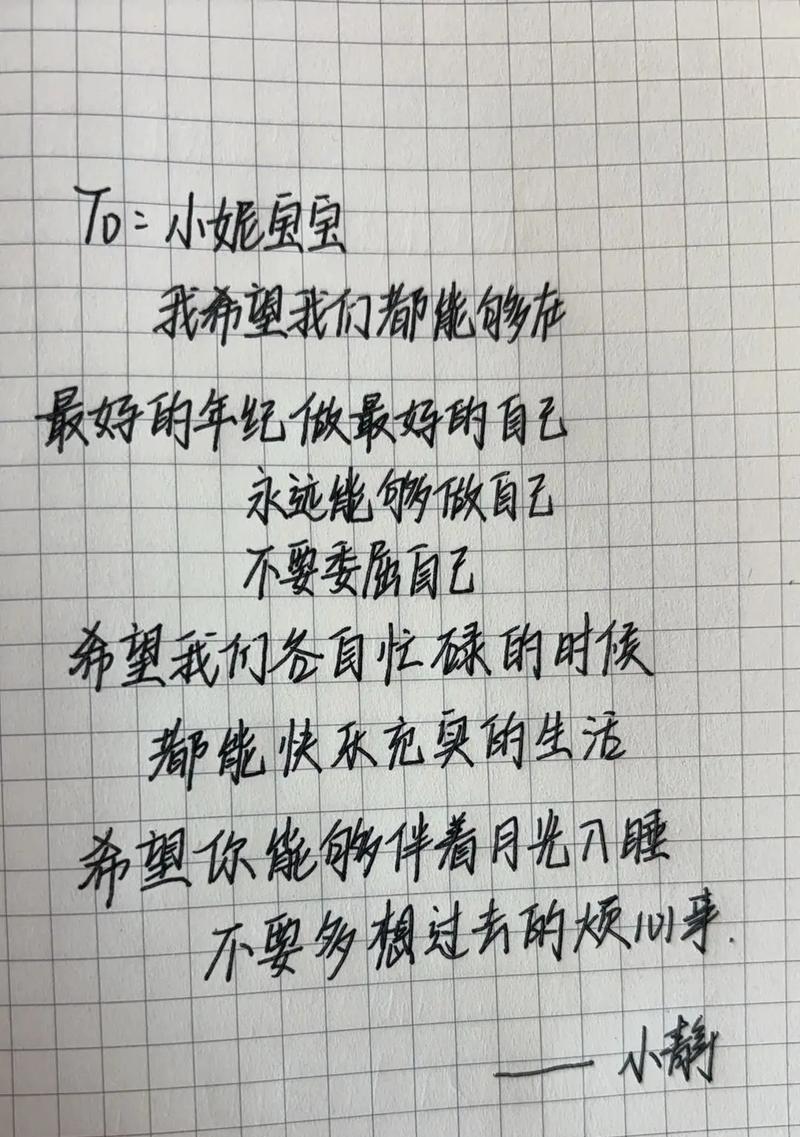 To: 小妮宝宝
我希望我们都能够在
最好的年纪做最好的自己
永远能够做自己
不要委屈自己
希望我们各自忙碌的时候
都能快乐充实的生活
希望你能够伴着月光入睡
不要多想过去的烦心事.
—— 小静